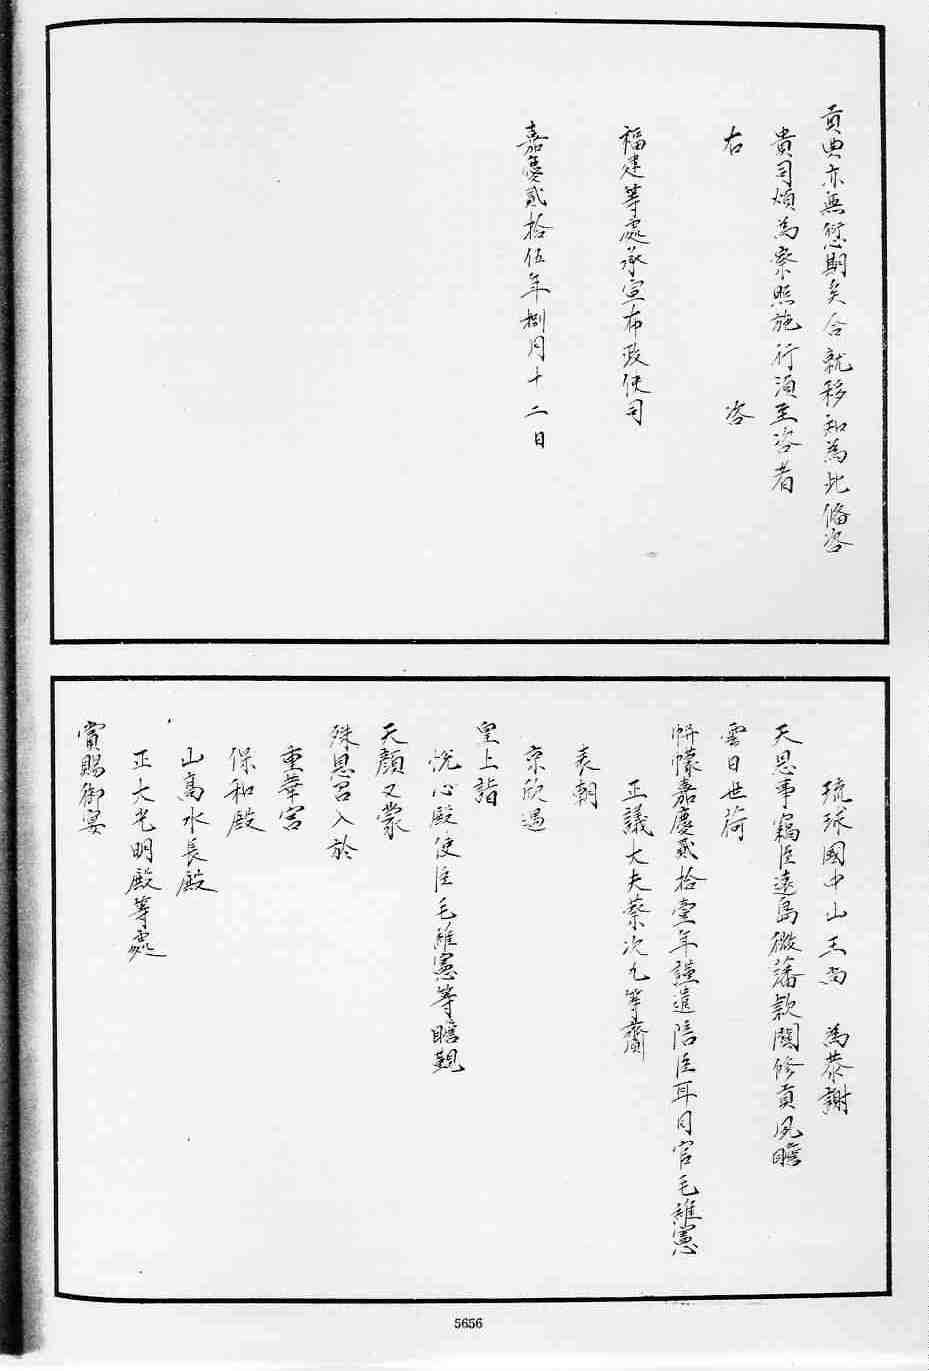 貢典亦無愆期矣合就移知為此備咨
貴司煩為察照施行須至咨者
右　咨
福建等處承宣布政使司
嘉慶貳拾伍年捌月十二日
琉球國中山王尚　為恭謝
天恩事竊臣遠島微藩款關修貢夙瞻
雲日世荷
帡幪嘉慶貳拾壹年謹遣陪臣耳目官毛維憲
正議大夫蔡次九等齎
表朝
京欣遇
皇上詣
悅心殿使臣毛維憲等瞻覲
天顏又蒙
殊恩召入於
重華宮
保和殿
山高水長殿
正大光明殿等處
賞賜御宴
5656